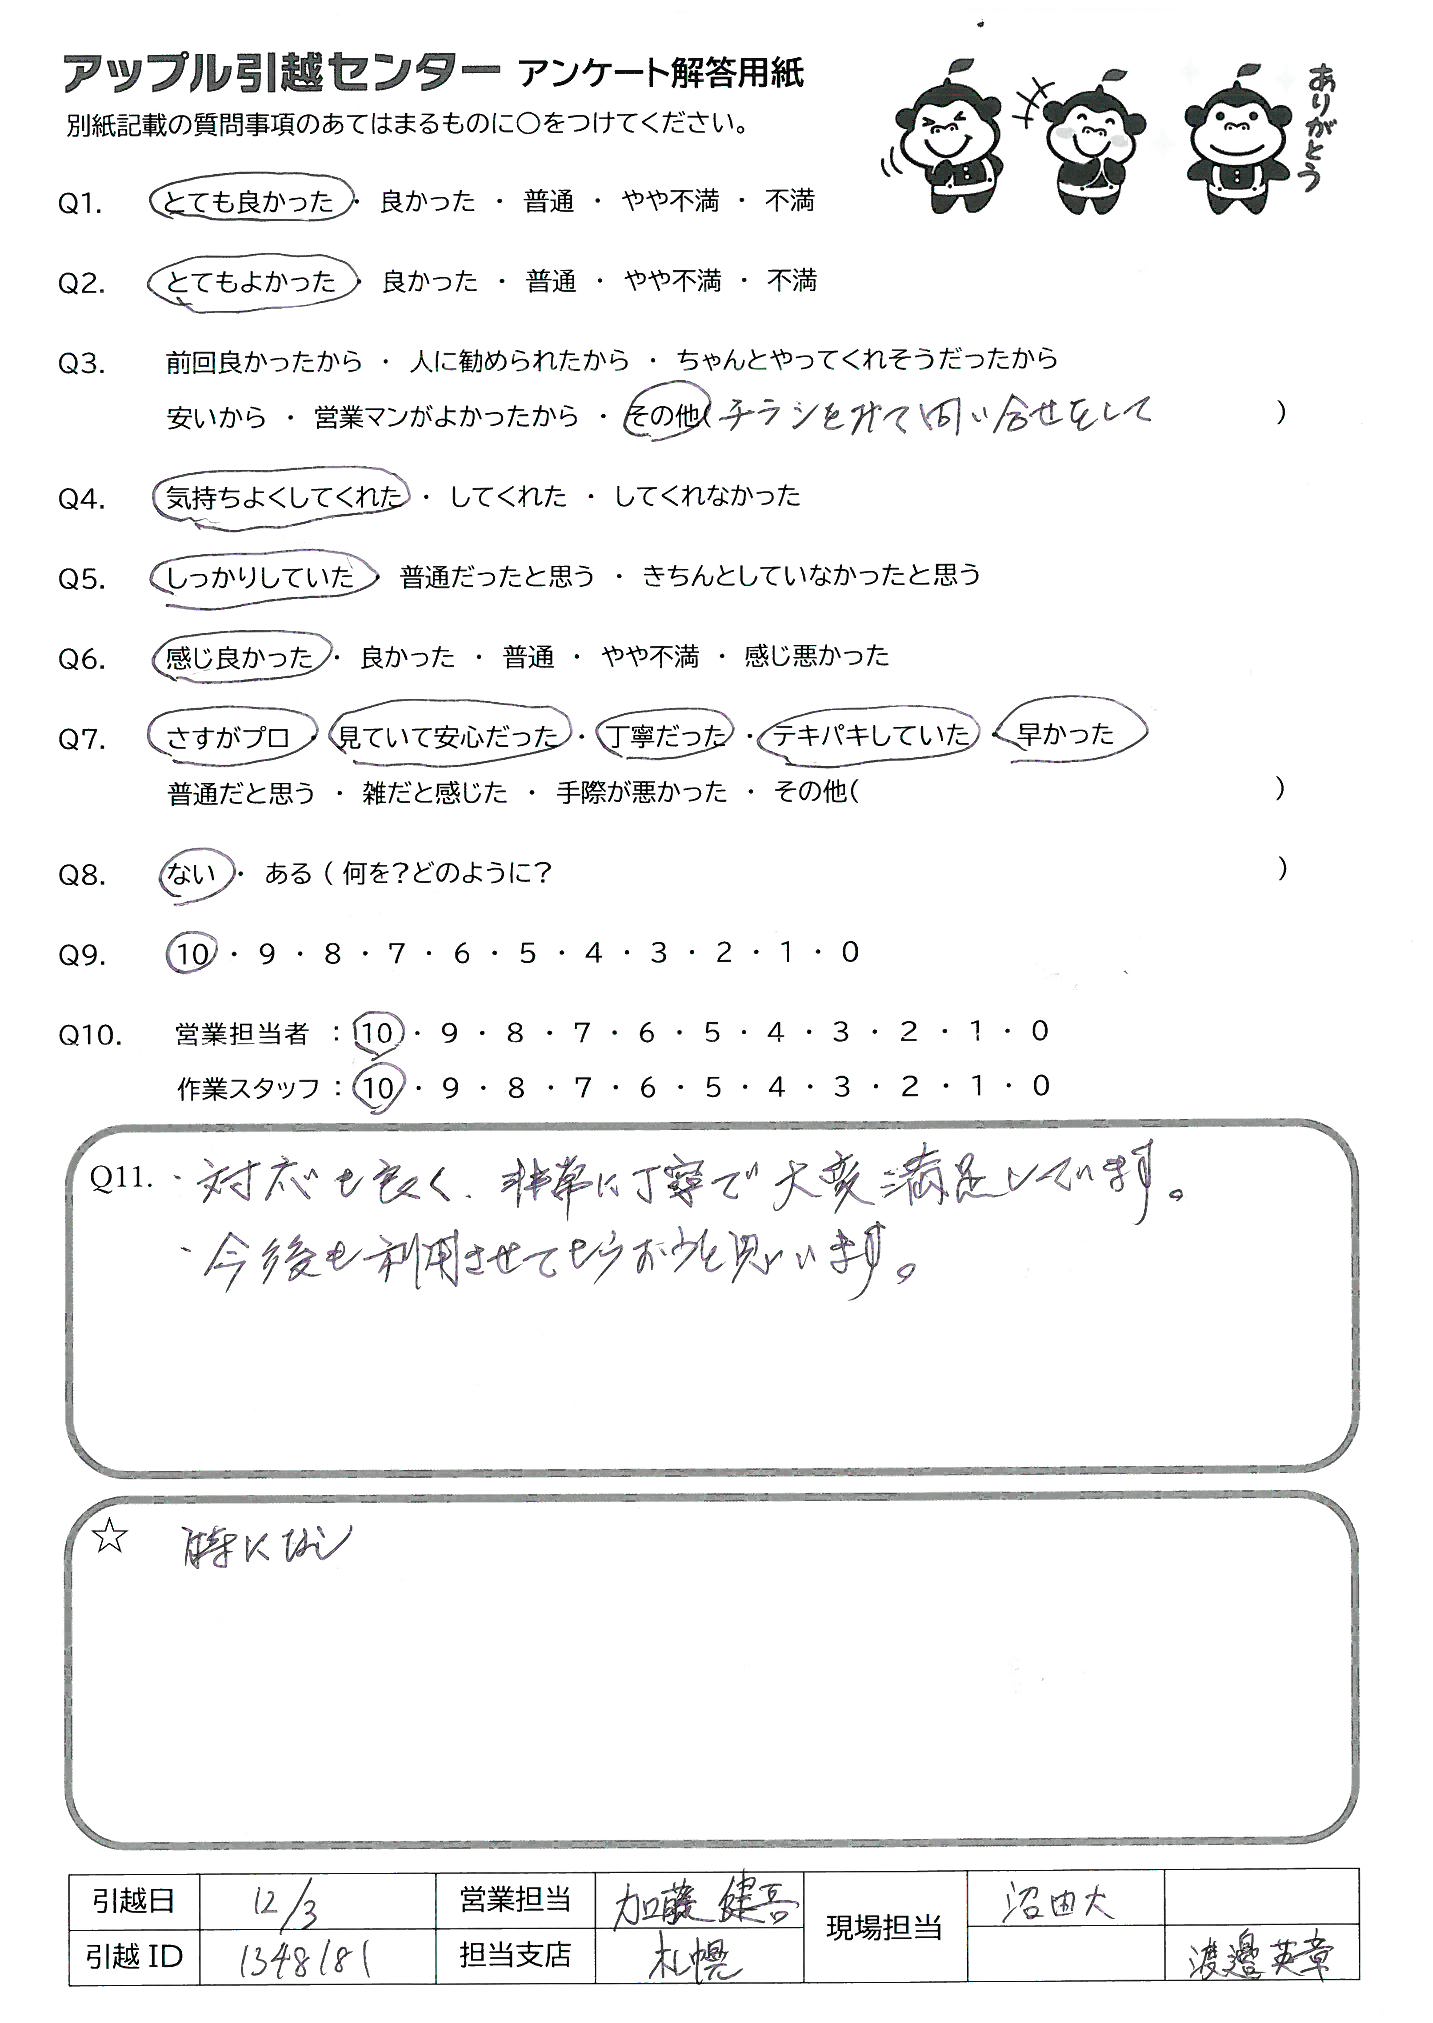 アップル引越センター アンケート解答用紙
別紙記載の質問事項のあてはまるものに〇をつけてください。
ありがとう
Q1. とても良かった ・ 良かった ・ 普通 ・ やや不満 ・ 不満
Q2. とてもよかった ・ 良かった ・ 普通 ・ やや不満 ・ 不満
Q3. 前回良かったから ・ 人に勧められたから ・ ちゃんとやってくれそうだったから
安いから ・ 営業マンがよかったから ・ その他( チラシをみて問い合せをして )
Q4. 気持ちよくしてくれた ・ してくれた ・ してくれなかった
Q5. しっかりしていた ・ 普通だったと思う ・ きちんとしていなかったと思う
Q6. 感じ良かった ・ 良かった ・ 普通 ・ やや不満 ・ 感じ悪かった
Q7. さすがプロ ・ 見ていて安心だった ・ 丁寧だった ・ テキパキしていた ・ 早かった
普通だと思う ・ 雑だと感じた ・ 手際が悪かった ・ その他( )
Q8. ない ・ ある ( 何を?どのように? )
Q9. 10 ・ 9 ・ 8 ・ 7 ・ 6 ・ 5 ・ 4 ・ 3 ・ 2 ・ 1 ・ 0
Q10. 営業担当者 : 10 ・ 9 ・ 8 ・ 7 ・ 6 ・ 5 ・ 4 ・ 3 ・ 2 ・ 1 ・ 0
作業スタッフ : 10 ・ 9 ・ 8 ・ 7 ・ 6 ・ 5 ・ 4 ・ 3 ・ 2 ・ 1 ・ 0
Q11. ・対応も良く、非常に丁寧で大変満足しています。
・今後も利用させてもらおうと思います。
☆ 特になし
引越日 12/3 営業担当 加藤 健吾 現場担当 沼田大
引越 ID 1348181 担当支店 札幌 渡邉英章